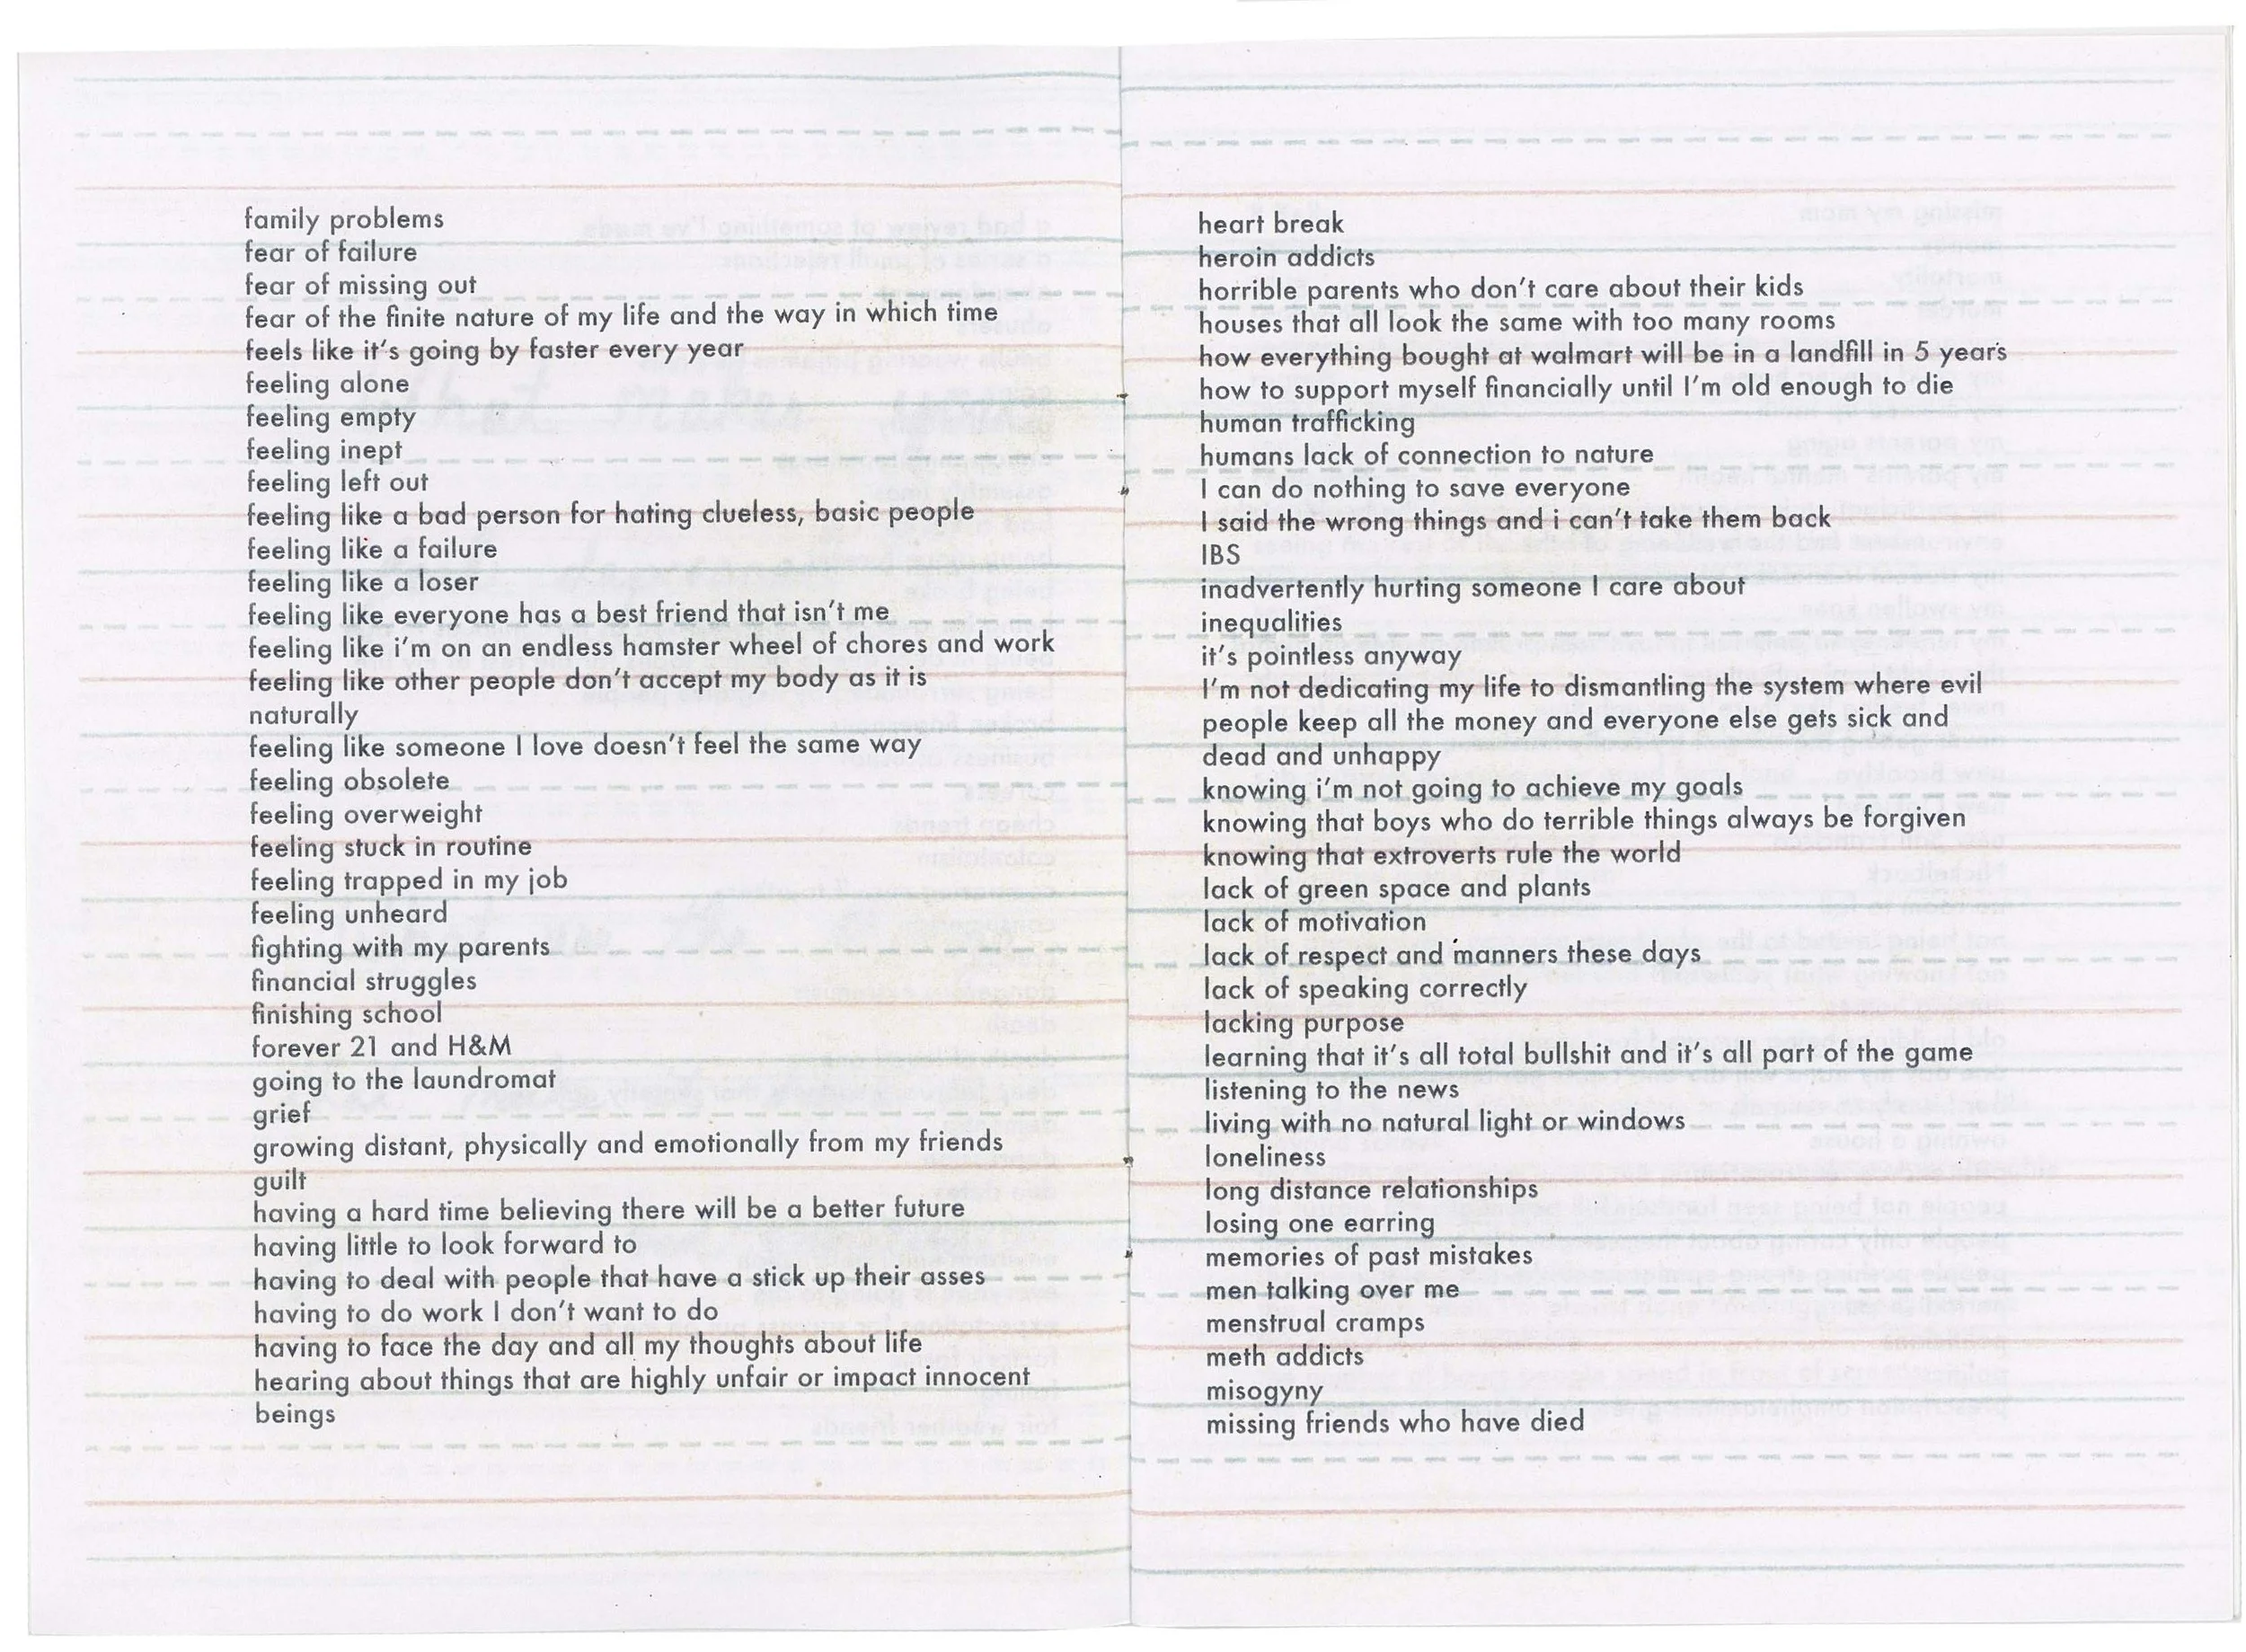 family problems
fear of failure
fear of missing out
fear of the finite nature of my life and the way in which time
feels like it's going by faster every year
feeling alone
feeling empty
feeling inept
feeling left out
feeling like a bad person for hating clueless, basic people
feeling like a failure
feeling like a loser
feeling like everyone has a best friend that isn't me
feeling like i'm on an endless hamster wheel of chores and work
feeling like other people don't accept my body as it is
naturally
feeling like someone I love doesn't feel the same way
feeling obsolete
feeling overweight
feeling stuck in routine
feeling trapped in my job
feeling unheard
fighting with my parents
financial struggles
finishing school
forever 21 and H&M
going to the laundromat
grief
growing distant, physically and emotionally from my friends
guilt
having a hard time believing there will be a better future
having little to look forward to
having to deal with people that have a stick up their asses
having to do work I don't want to do
having to face the day and all my thoughts about life
hearing about things that are highly unfair or impact innocent
beings
heart break
heroin addicts
horrible parents who don't care about their kids
houses that all look the same with too many rooms
how everything bought at walmart will be in a landfill in 5 years
how to support myself financially until I'm old enough to die
human trafficking
humans lack of connection to nature
I can do nothing to save everyone
I said the wrong things and i can't take them back
IBS
inadvertently hurting someone I care about
inequalities
it's pointless anyway
I'm not dedicating my life to dismantling the system where evil
people keep all the money and everyone else gets sick and
dead and unhappy
knowing i'm not going to achieve my goals
knowing that boys who do terrible things always be forgiven
knowing that extroverts rule the world
lack of green space and plants
lack of motivation
lack of respect and manners these days
lack of speaking correctly
lacking purpose
learning that it's all total bullshit and it's all part of the game
listening to the news
living with no natural light or windows
loneliness
long distance relationships
losing one earring
memories of past mistakes
men talking over me
menstrual cramps
meth addicts
misogyny
missing friends who have died